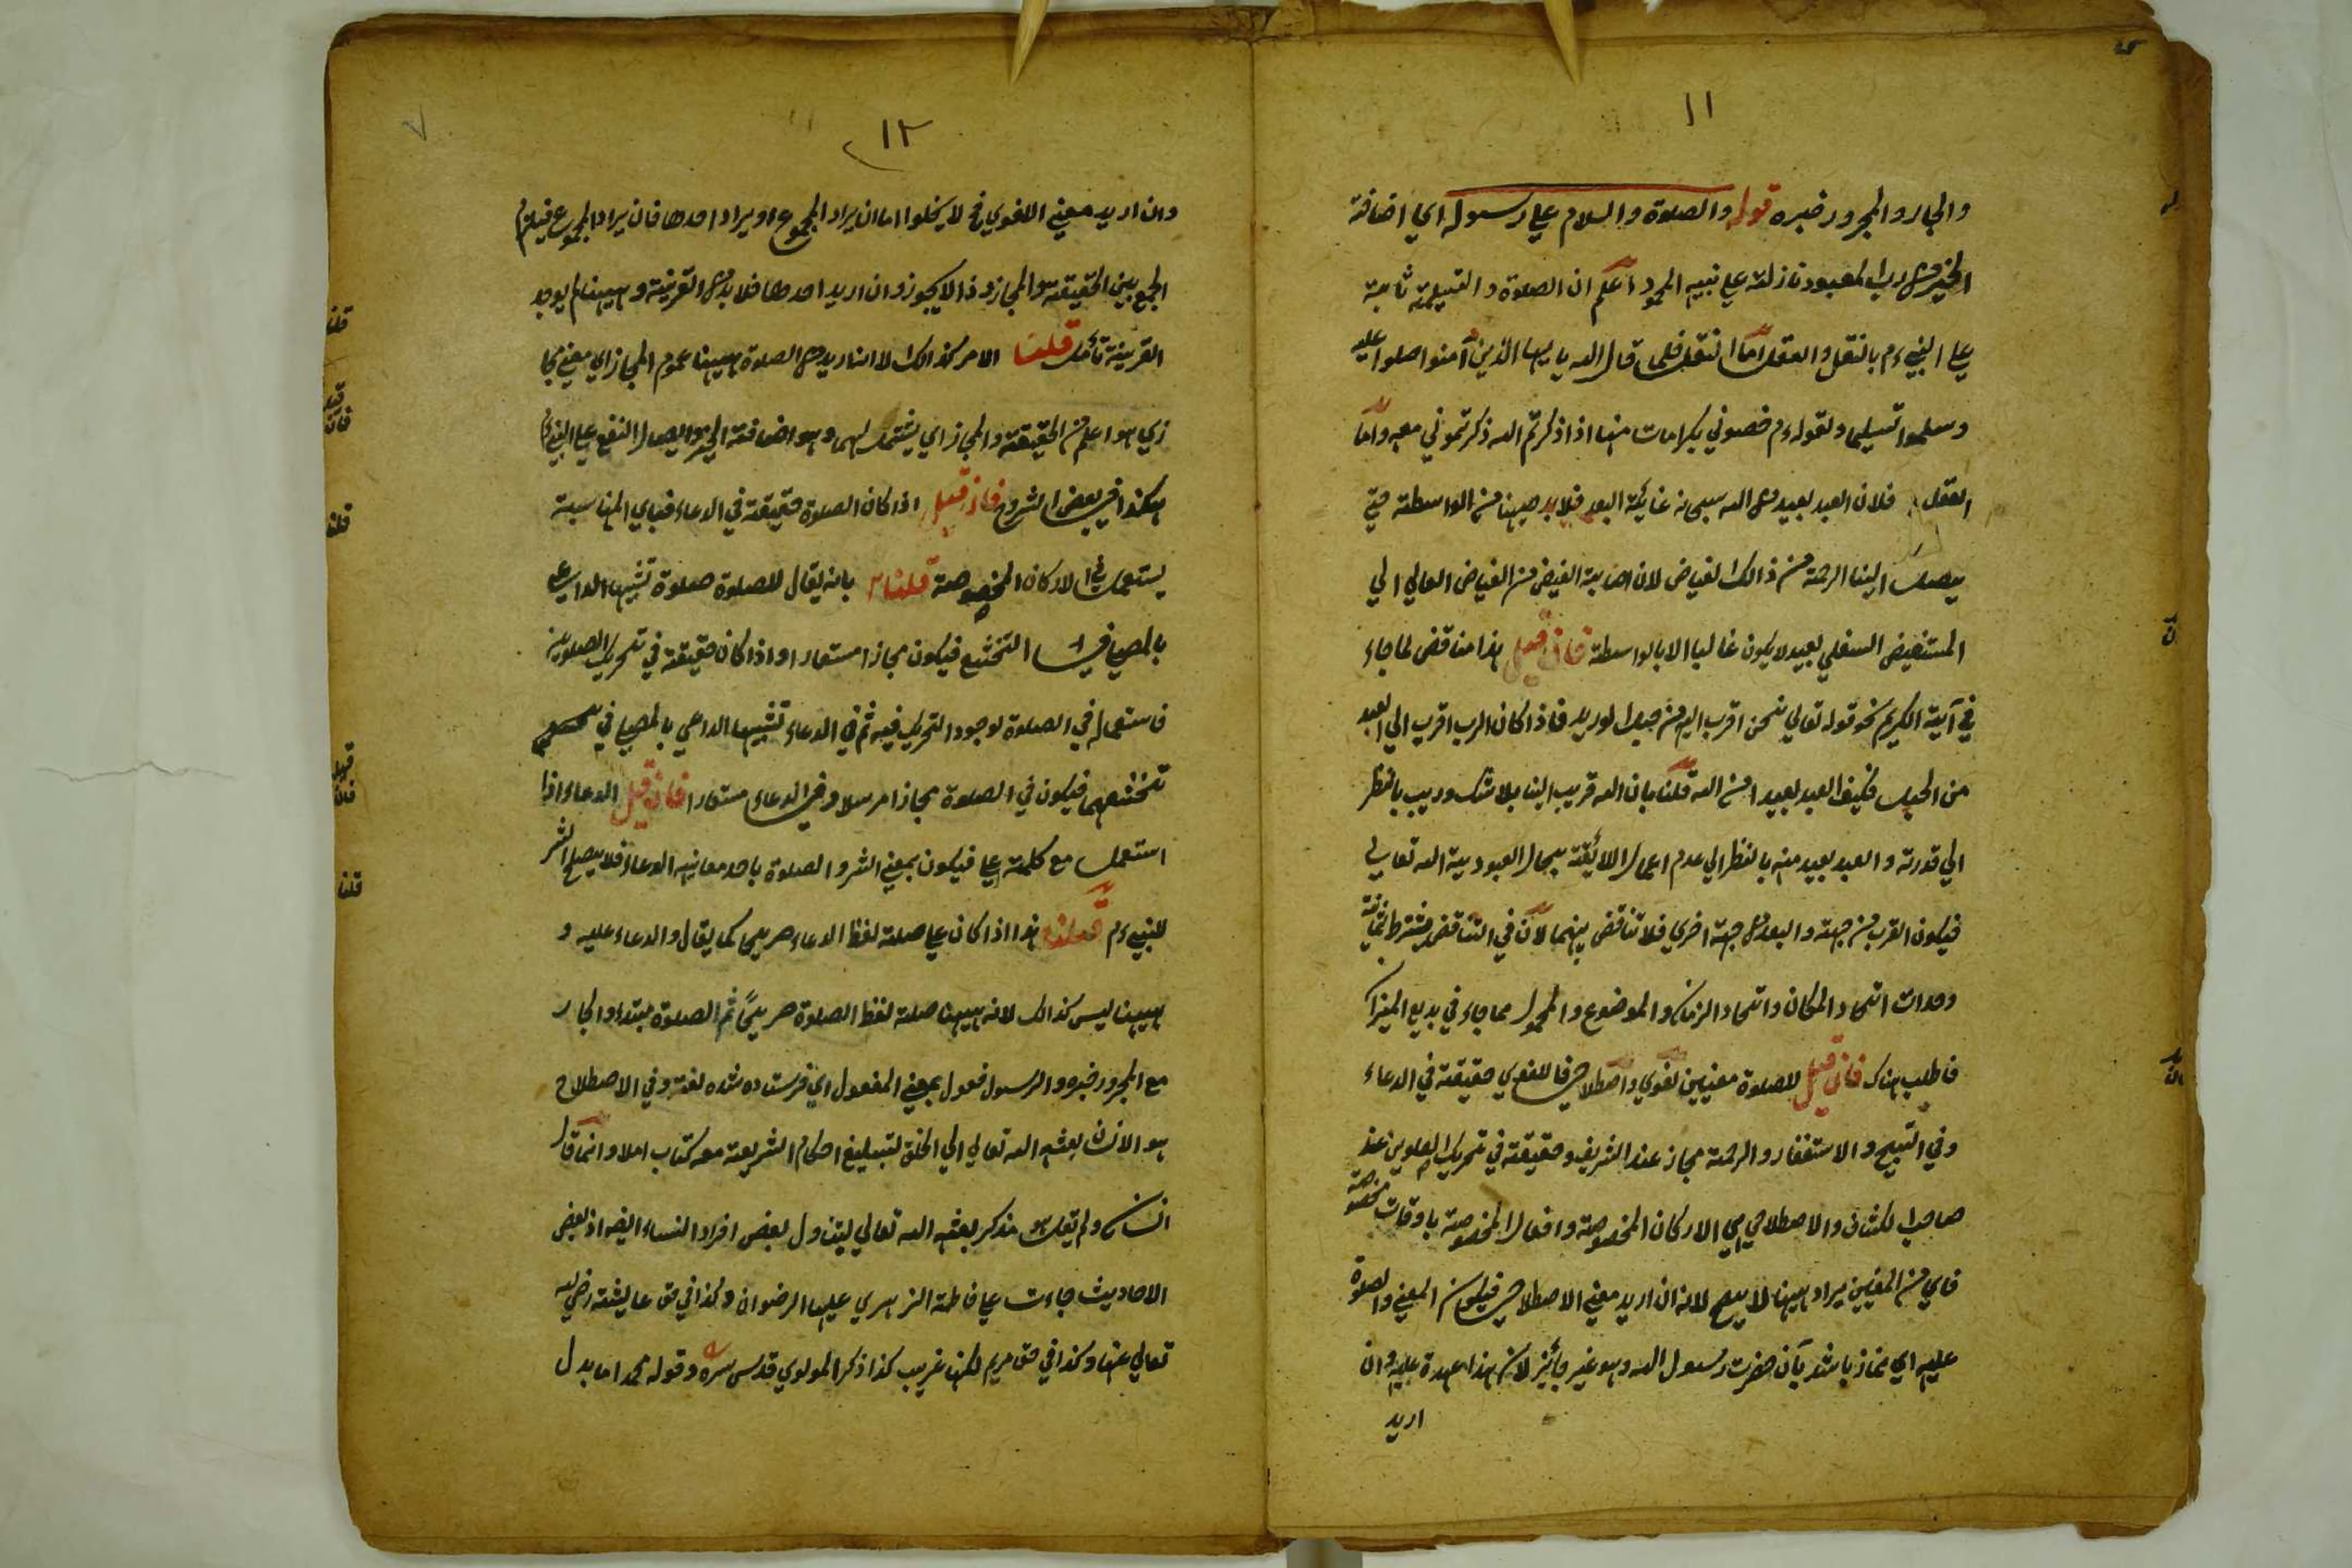 ١١
والجار والمجرور خبره قوله والصلوة والسلام علي رسوله اي اضافة
الخير من رب المعبود نازلة علي نبيه المحمود اعلم ان الصلوة والتسليمة ثابتة
علي النبي ءم بالنقل والعقل اما النقل فلما قال الله يايها الذين آمنوا صلوا عليه
وسلموا تسليما ولقوله ءم خصوني بكرامات منها اذا ذكرتم الله ذكرتموني معه واما
العقل فلان العبد بعيد من الله سبحانه غاية البعد فلا بد ههنا من الواسطة حتي
يصل الينا الرحمة من ذالك الفياض لان اصابة الفيض من الفياض العالي الي
المستفيض السفلي بعيد لا يكون غالبا الا بالواسطة فان قيل هذا مناقض لما جاء
في آية الكريم نحو قوله تعالي نحن اقرب اليه من حبل الوريد فاذا كان الرب اقرب الي العبد
من الحبل فكيف العبد بعيدا من الله قلنا بان الله قريب الينا بلا شك وريب بالنظر
الي قدرته والعبد بعيد منه بالنظر الي عدم اعمال اللائقة بحال العبودية الله تعالي
فيكون القرب من جهة والبعد من جهة اخري فلا تناقض بينهما لان في التناقض يشترط ثمانية
وحدات اتحاد المكان واتحاد الزمان والموضوع والمحمول مما جاء في بديع الميزان
فاطلب هناك فان قيل للصلوة معنيين لغوي واصطلاحي فاللغوي حقيقة في الدعاء
وفي التسبيح والاستغفار والرحمة مجاز عند الشريف وحقيقة في تحريك الصلوين عند
صاحب الكشاف والاصطلاحي هي الاركان المخصوصة وافعال المخصوصة باوقات مخصوصة
فاي من المعنيين يراد ههنا لا يصح لانه ان اريد معني الاصطلاحي فيكون المعني والصلوة
عليه اي نماز باشد بآن حضرت رسول الله وهو غير جائز لان هذا عهدة عليه وان
اريد
١٢
وان اريد معني اللغوي فح لا يخلوا اما ان يراد المجموع او يراد احدها فان يراد المجموع فيلزم
الجمع بين الحقيقة والمجاز وذا لا يجوز وان اريد احدها فلا بد من القرينة وههنا لم يوجد
القرينة تأمل قلنا الامر كذالك الا انا نريد من الصلوة ههنا عموم المجاز اي معني مجا
زي هو اعلم من الحقيقة والمجاز اي يشتمل لهما وهو اضافة الخير وايصال النفع علي النبي ءم
هكذا في بعض الشروح فان قيل اذا كان الصلوة حقيقة في الدعاء فباي المناسبة
يستعمل في الاركان المخصوصة قلنا بانه يقال للصلوة صلوة تشبيها الداعي
بالمصلي في التخشع فيكون مجازا مستعارا واذا كان حقيقة في تحريك الصلوين
فاستعماله في الصلوة لوجود التحريك فيه ثم في الدعاء تشبيها الداعي بالمصلي في
تخشعهما فيكون في الصلوة مجازا مرسلا وفي الدعاء مستعارا فان قيل الدعاء اذا
استعمل مع كلمة علي فيكون بمعني الشر والصلوة باحد معانيه الدعاء فلا يصح الشر
للنبي ءم قلنا هذا اذا كان علي صلة لفظ الدعاء صريحا كما يقال والدعاء عليه و
ههنا ليس كذالك لانه ههنا صلة لفظ الصلوة صريحا ثم الصلوة مبتداء والجار
مع المجرور خبره والرسول فعول بمعني المفعول اي فرستاده شده لغة وفي الاصطلاح
هو الانسان بعثه الله تعالي الي الخلق لتبليغ احكام الشريعة معه كتاب املا وانما قال
انسان ولم يقل مذكر بعثه الله تعالي ليتناول بعض افراد النساء ايضا اذ بعض
الاحاديث جاءت علي فاطمة الزهري عليها الرضوان وكذا في حق عايشة رضي الله
تعالي عنها وكذا في حق مريم لكنها غريب كذا ذكر المولوي قدس سره وقوله محمد اما بدل
قلنا
فان قيل
قلنا
فان قيل
قلنا